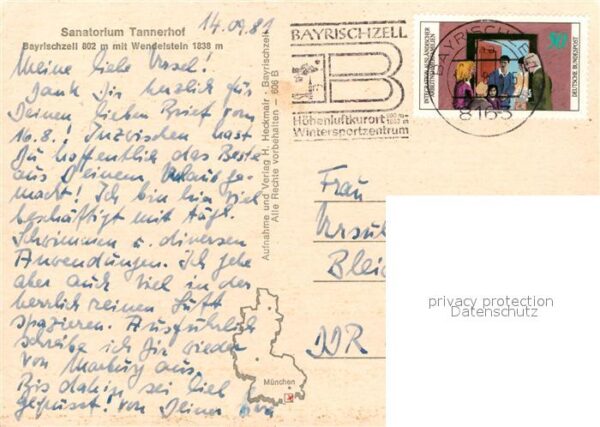 Sanatorium Tannerhof
Bayrischzell 802 m mit Wendelstein 1838 m
14.09.81
Meine liebe Ursel!
Dank Dir herzlich für
Deinen lieben Brief vom
16.8.! Inzwischen hast
Du hoffentlich das Beste
aus Deinem Urlaub ge-
macht! Ich bin hier viel
beschäftigt mit tägl.
Schwimmen u. diversen
Anwendungen. Ich gehe
aber auch viel in der
herrlich reinen Luft
spazieren. Ausführlich
schreibe ich Dir wieder
von Marburg aus.
Bis dahin sei lieb
gegrüsst! von Deiner
Aufnahme und Verlag H. Heckmair, Bayrischzell
Alle Rechte vorbehalten – 606 B
München
BAYRISCHZELL
B
Höhenluftkurort 800 m-
Wintersportzentrum
INTEGRATION AUSLÄNDISCHER
ARBEITNEHMERFAMILIEN
50
DEUTSCHE BUNDESPOST
BAYRISCHZELL
8163
Frau
Ursul
Blei
DDR
privacy protection
Datenschutz